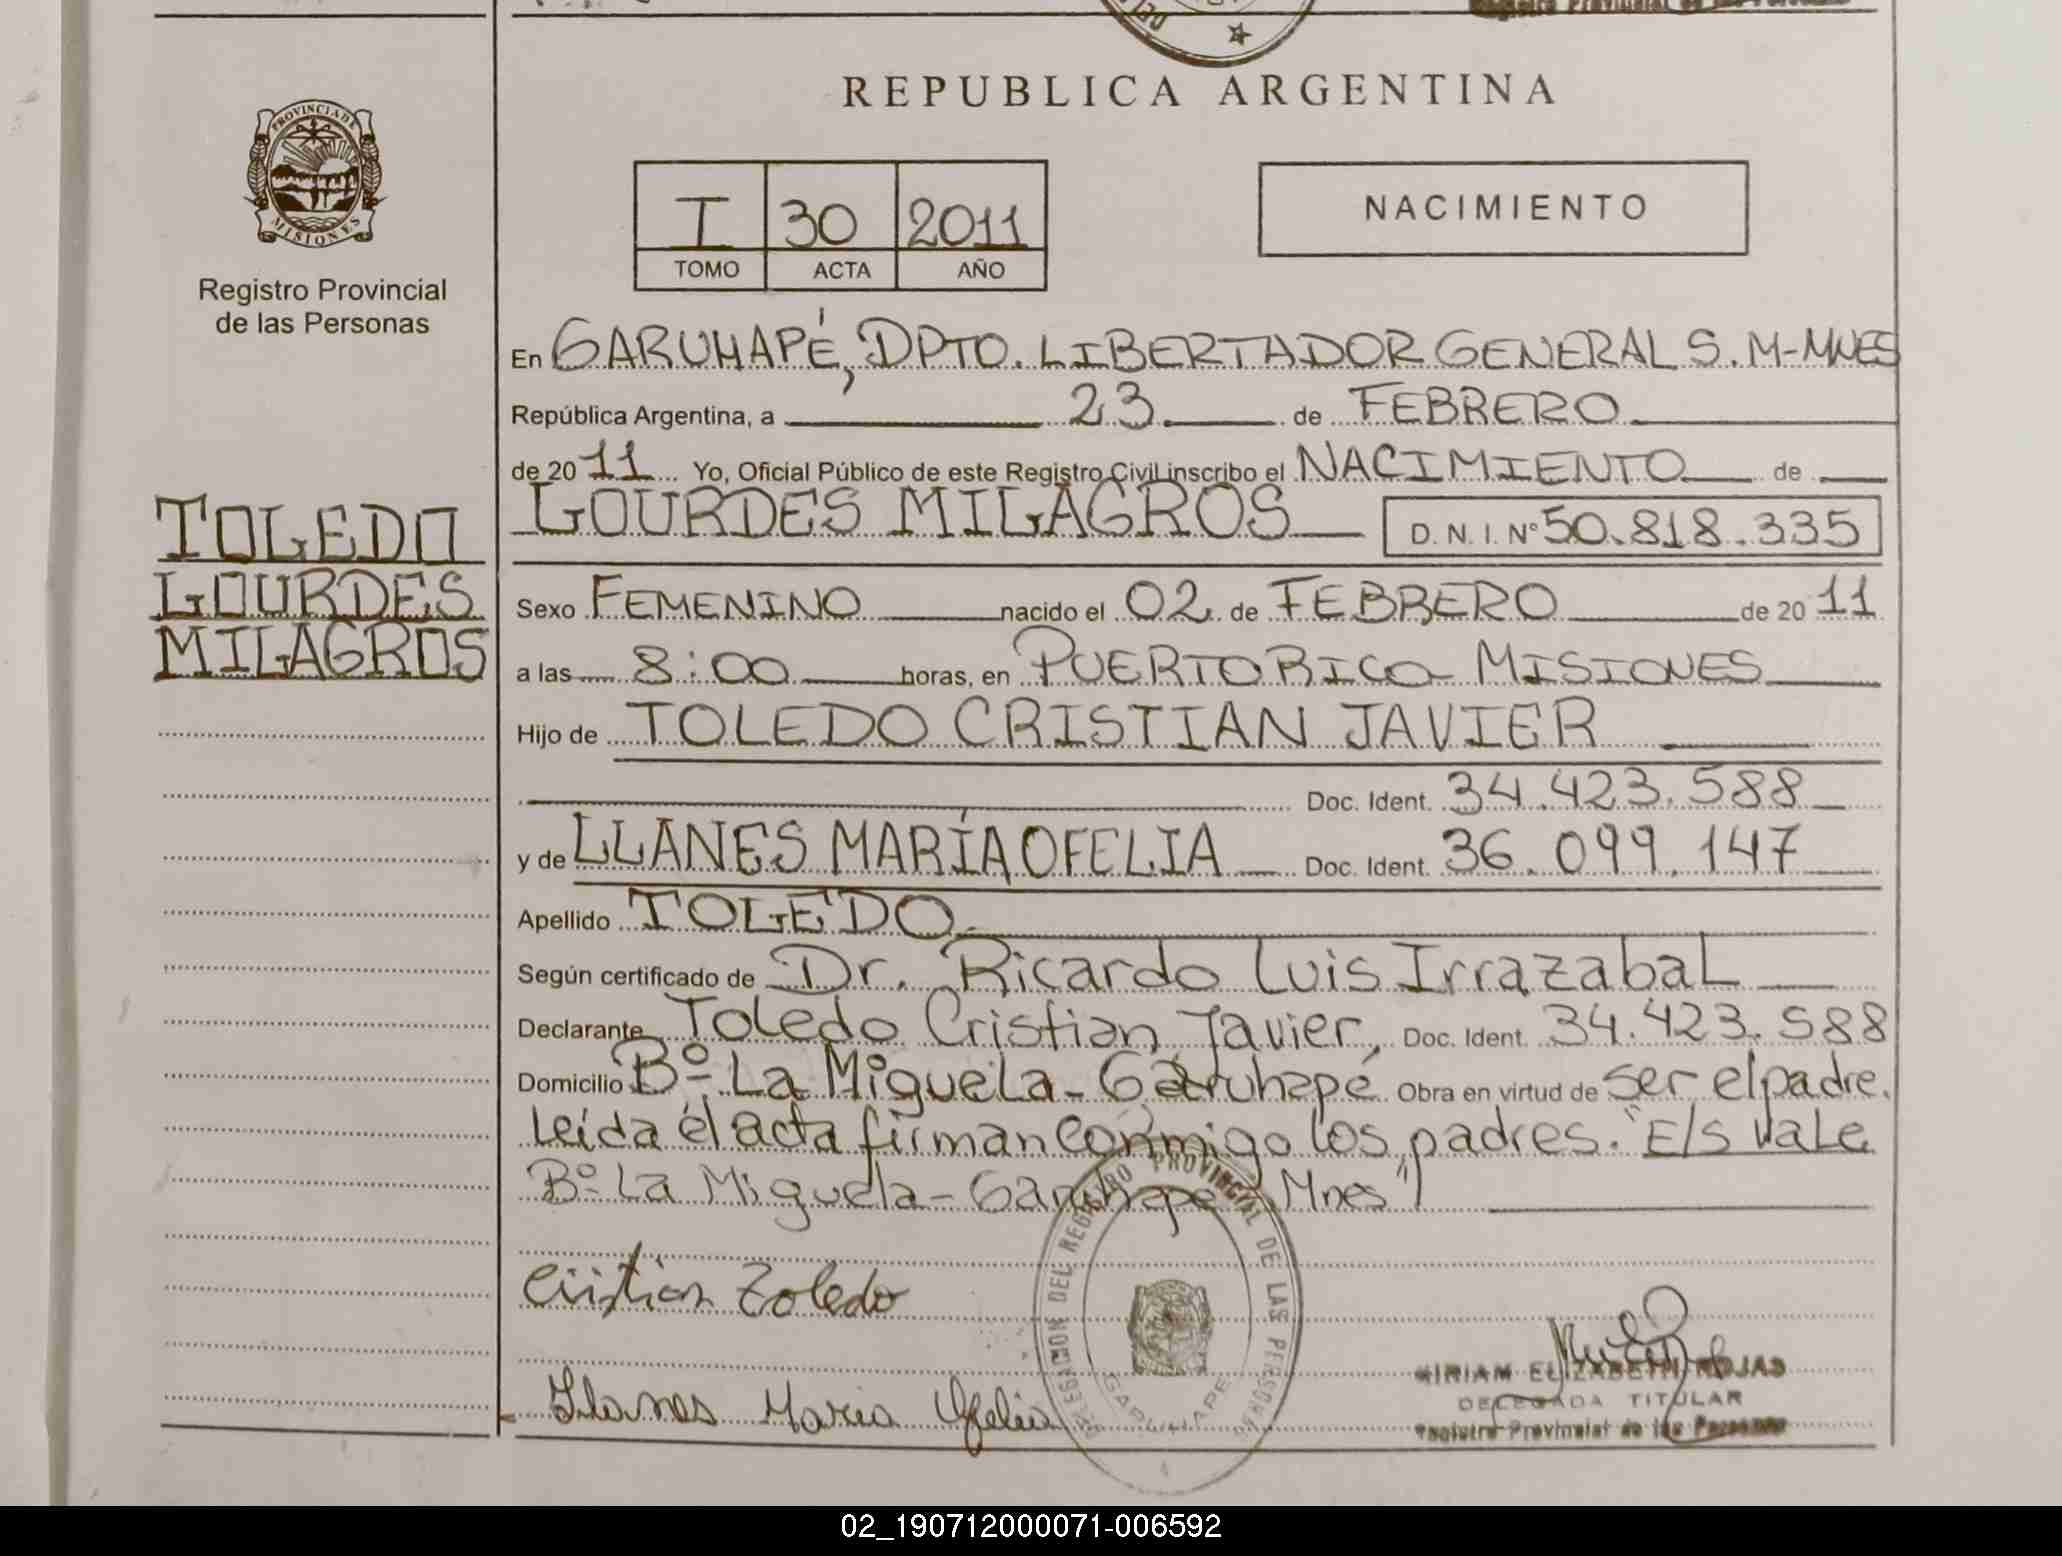 REPUBLICA ARGENTINA
PROVINCIA DE
MISIONES
Registro Provincial
de las Personas
I 30 2011
TOMO ACTA AÑO
NACIMIENTO
En GARUHAPÉ, DPTO. LIBERTADOR GENERAL S. M-MNES
República Argentina, a 23 de FEBRERO
de 2011 Yo, Oficial Público de este Registro Civil inscribo el NACIMIENTO de
LOURDES MILAGROS D. N. I. Nº 50.818.335
TOLEDO
LOURDES
MILAGROS
Sexo FEMENINO nacido el 02 de FEBRERO de 2011
a las 8:00 horas, en PUERTO RICO- MISIONES
Hijo de TOLEDO CRISTIAN JAVIER
Doc. Ident. 34.423.588
y de LLANES MARÍA OFELIA Doc. Ident. 36.099.147
Apellido TOLEDO
Según certificado de Dr. Ricardo Luis Irrazabal
Declarante Toledo Cristian Javier, Doc. Ident. 34.423.588
Domicilio Bº La Miguela- Garuhapé Obra en virtud de ser el padre.
Leída el acta firman conmigo los padres. "E/s Vale
Bº La Miguela- Garuhape Mnes"
Cristian Toledo
Llanes Maria Ofelia
DELEGACION DEL REGISTRO PROVINCIAL DE LAS PERSONAS
GARUHAPE
MIRIAM ELIZABETH ROJAS
DELEGADA TITULAR
Registro Provincial de las Personas
02_190712000071-006592